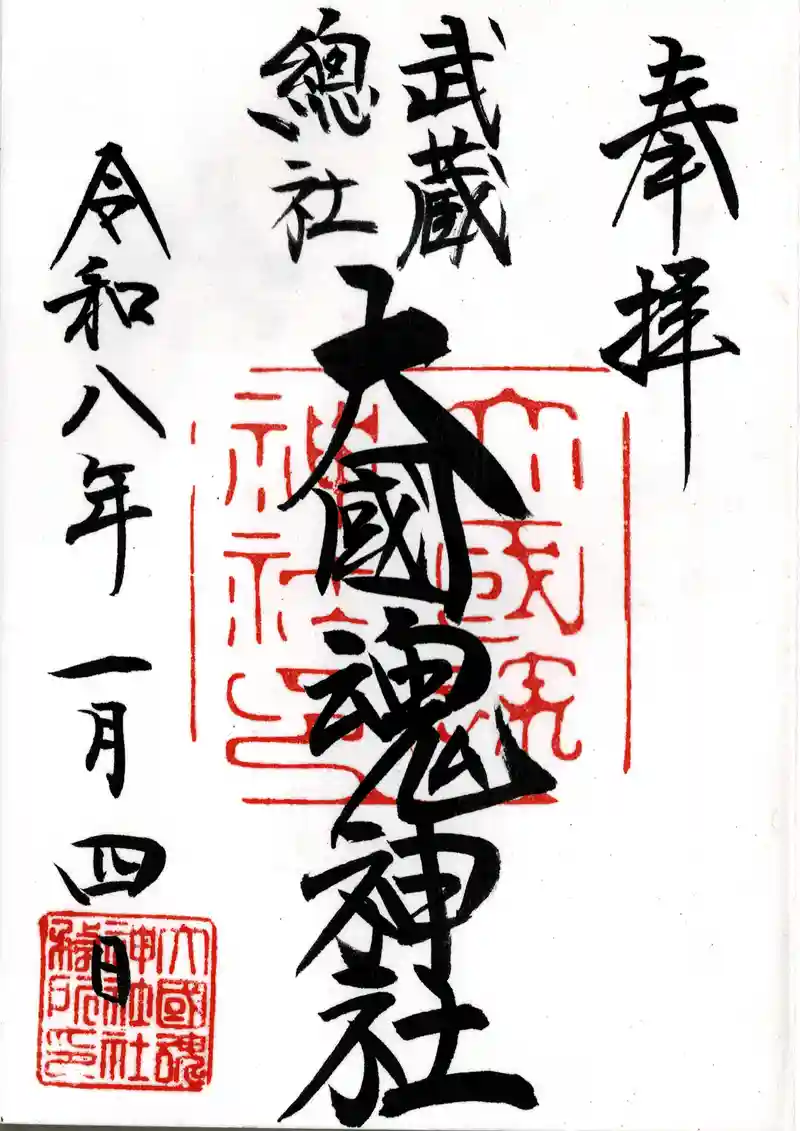 奉拝
武蔵
總社
大國魂神社
令和八年一月四日
大國魂
神社印
大國魂
神社社
務所印